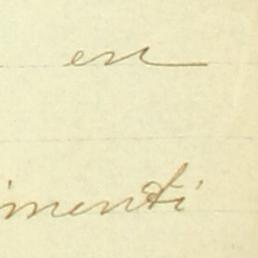 en
imenti